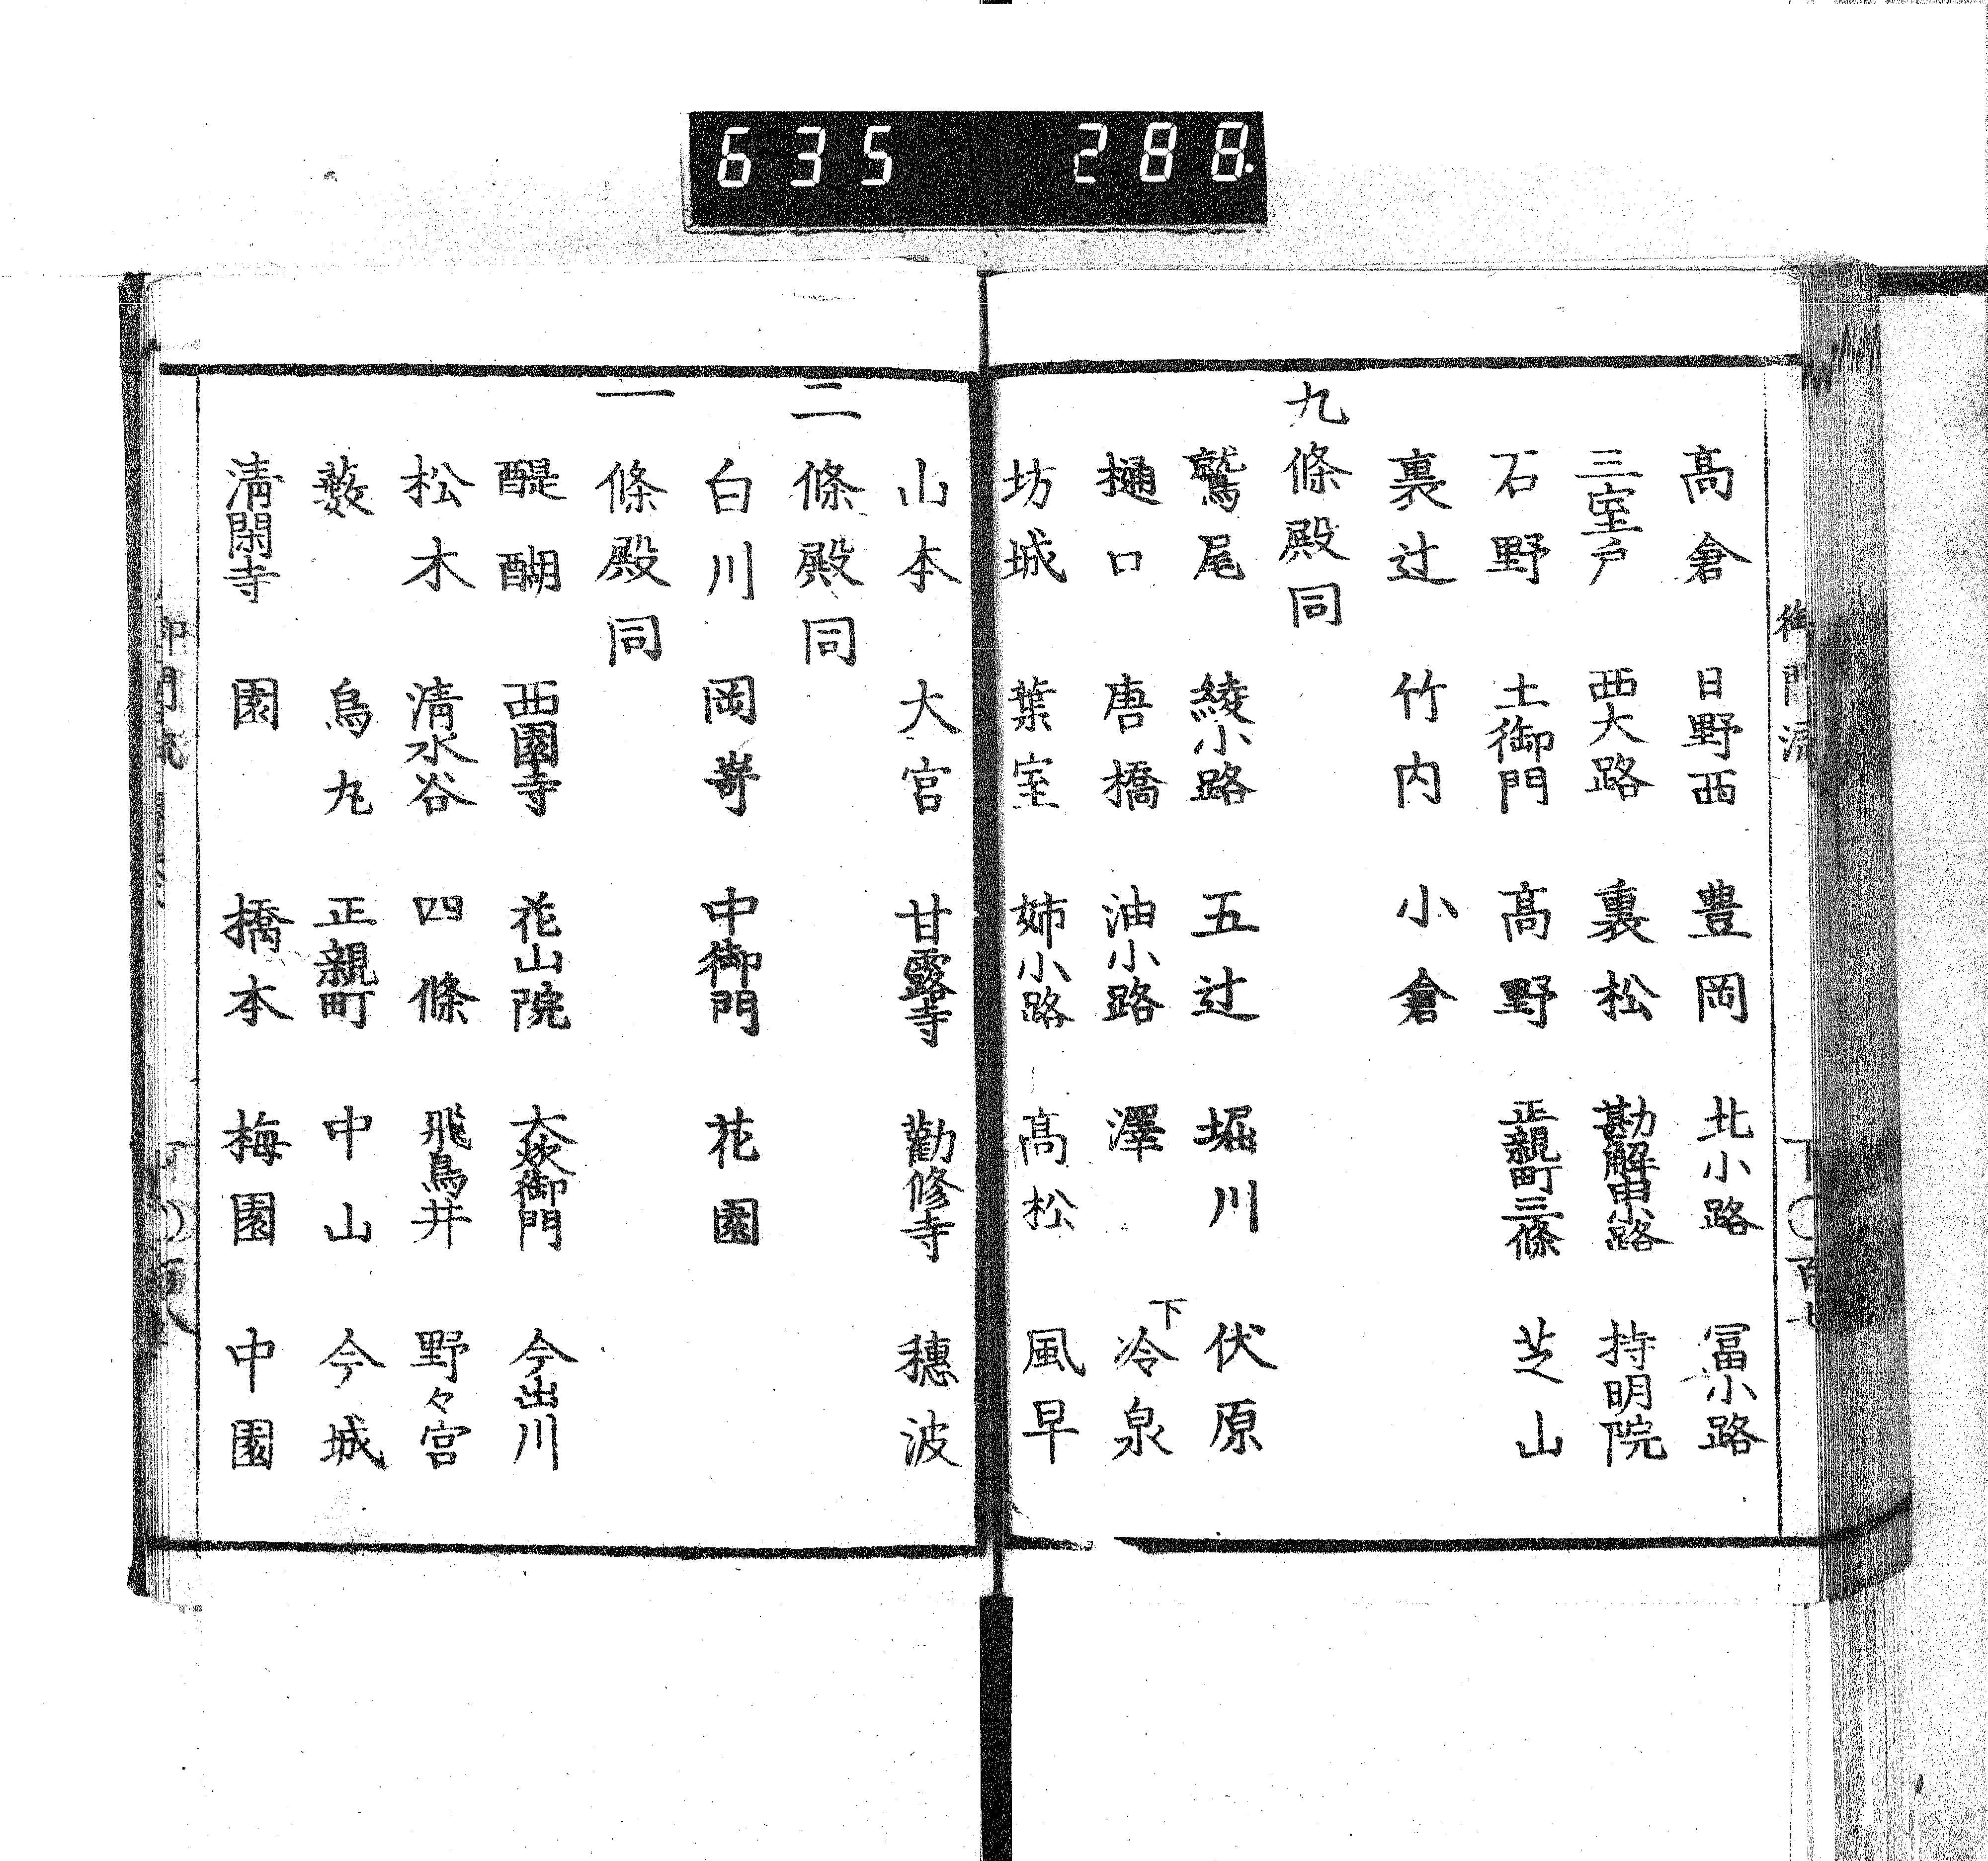 635 288.
御門流
下○百七
高倉 日野西 豊岡 北小路 冨小路
三室戸 西大路 裏松 勘解由小路 持明院
石野 土御門 高野 正親町三條 芝山
裏辻 竹内 小倉
九條殿同
鷲尾 綾小路 五辻 堀川 伏原
樋口 唐橋 油小路 澤 下冷泉
坊城 葉室 姉小路 高松 風早
山本 大宮 甘露寺 勸修寺 穗波
二條殿同
白川 岡嵜 中御門 花園
一條殿同
醍醐 西園寺 花山院 大炊御門 今出川
松木 清水谷 四條 飛鳥井 野々宮
薮 烏丸 正親町 中山 今城
清閑寺 園 橋本 梅園 中園